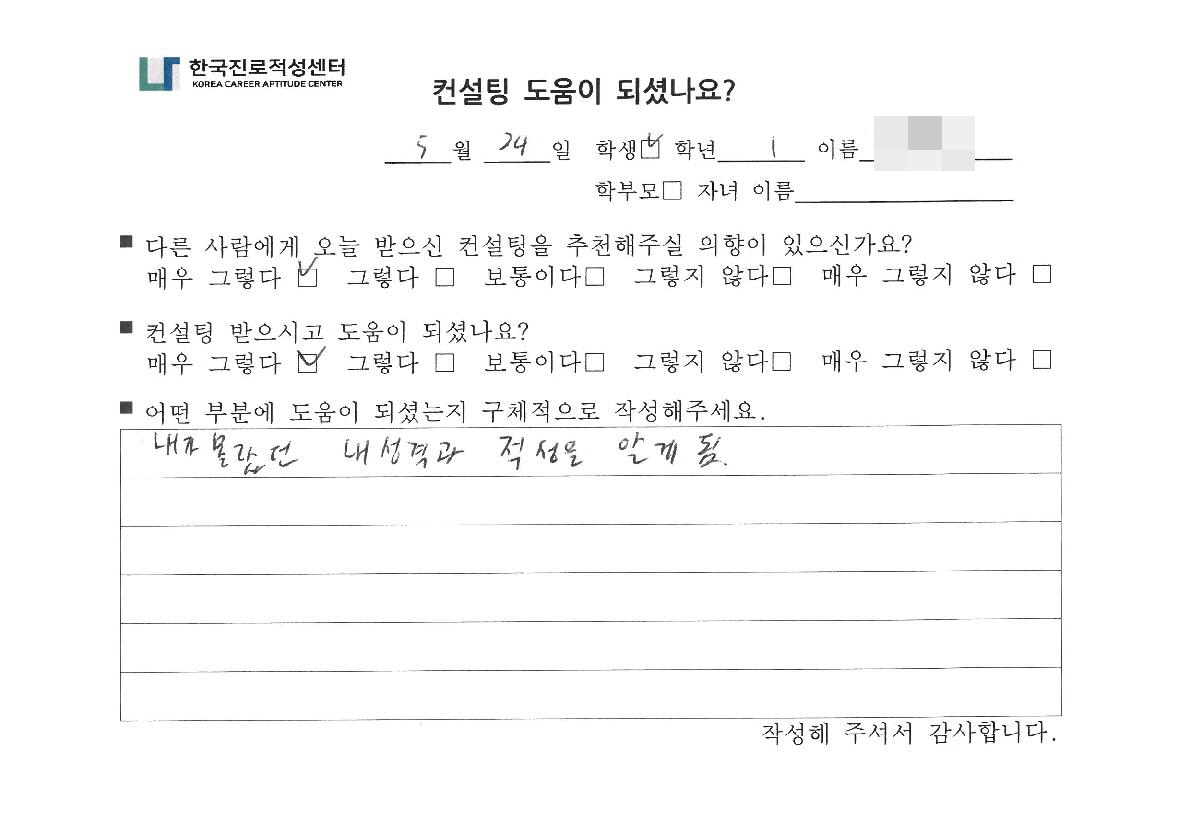 한국진로적성센터
KOREA CAREER APTITUDE CENTER
컨설팅 도움이 되셨나요?
5월 24일 학생☑ 학년 1 이름
학부모□ 자녀 이름
■ 다른 사람에게 오늘 받으신 컨설팅을 추천해주실 의향이 있으신가요?
매우 그렇다 ☑ 그렇다 □ 보통이다□ 그렇지 않다□ 매우 그렇지 않다 □
■ 컨설팅 받으시고 도움이 되셨나요?
매우 그렇다 ☑ 그렇다 □ 보통이다□ 그렇지 않다□ 매우 그렇지 않다 □
■ 어떤 부분에 도움이 되셨는지 구체적으로 작성해주세요.
내가 몰랐던 내 성격과 적성을 알게 됨.
작성해 주셔서 감사합니다.